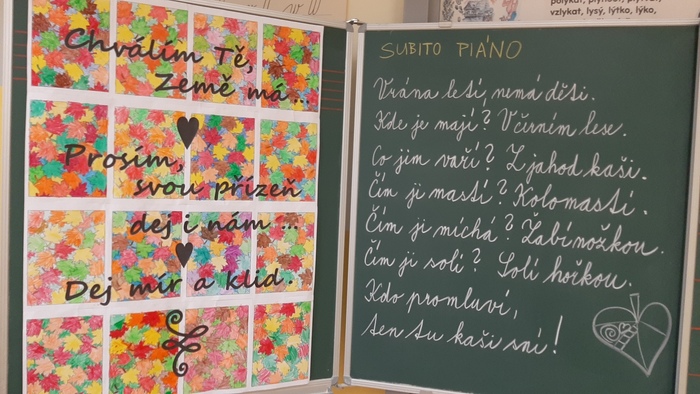 Chválím Tě,
Země má...
Prosím,
svou přízeň
dej i nám...
Dej mír a klid.
polykat, plynost, plynout,
vzlykat, lysý, lýtko, lýko,
SUBITO PIÁNO
Vrána letí, nemá děti.
Kde je mají? V černém lese.
Co jim vaří? Z jahod kaši.
Čím ji mastí? Kolomastí.
Čím ji míchá? Žabí nožkou.
Čím ji solí? Solí hořkou.
Kdo promluví,
ten tu kaši sní!